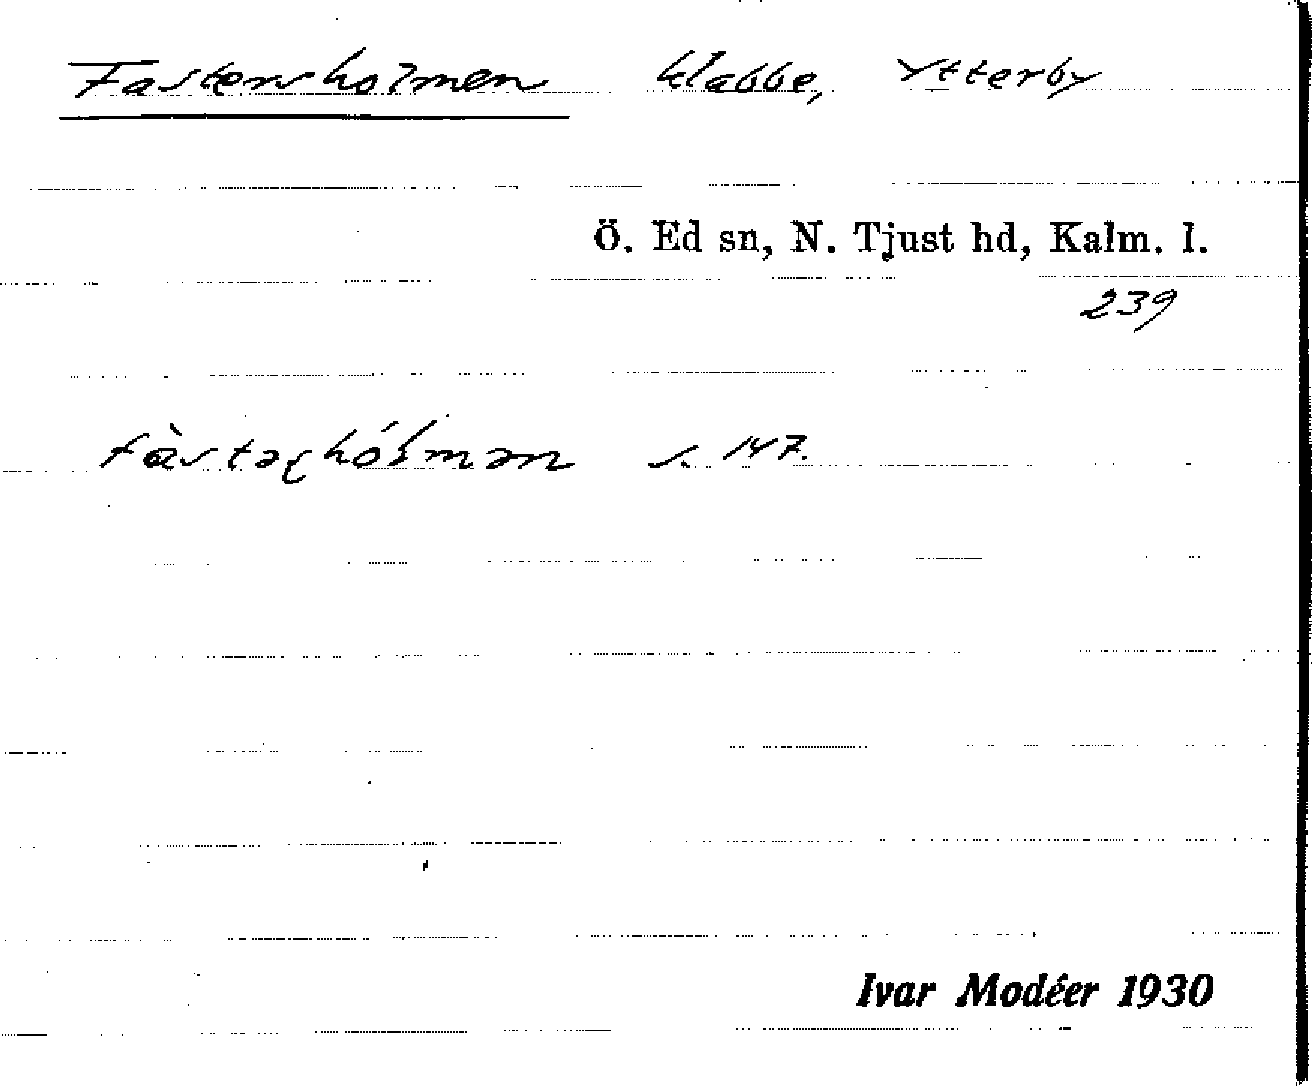 Fastersholmen klabbe, Ytterby
Ö. Ed sn, N. Tjust hd, Kalm. l.
239
s. 147.
Ivar Modéer 1930